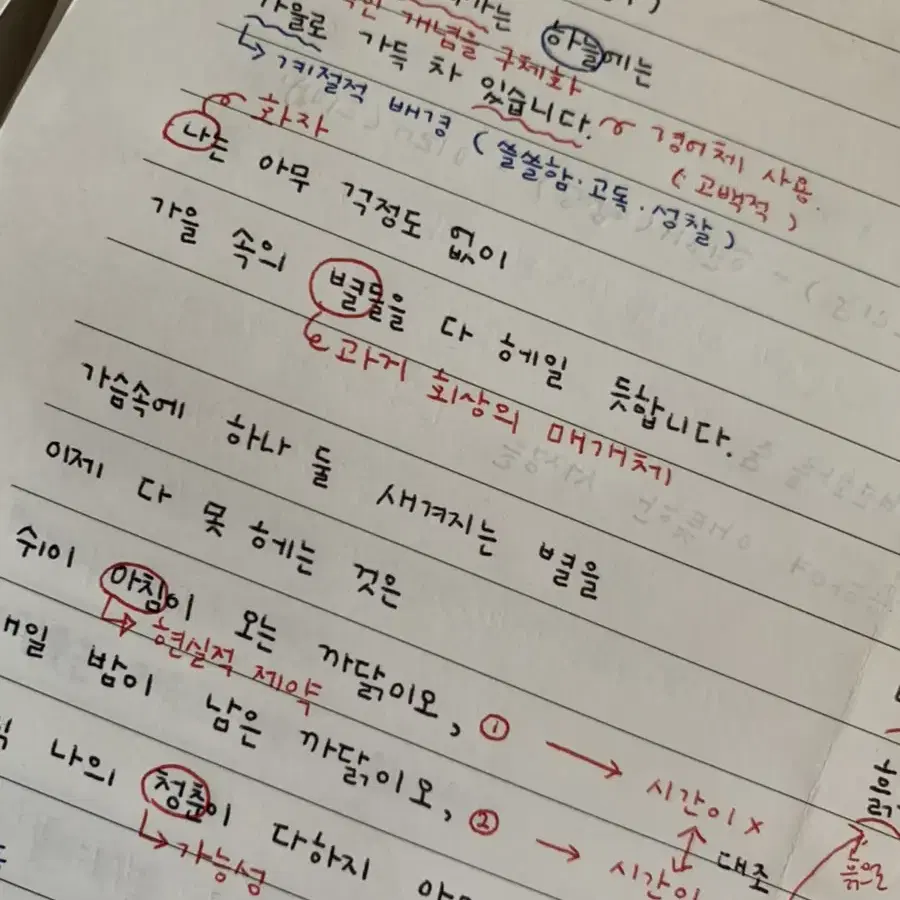 가는 하늘에는
개념을 구체화
가을로 가득 차 있습니다.
계절적 배경 (쓸쓸함·고독·성찰)
경어체 사용.
(고백적)
화자
나는 아무 걱정도 없이
가을 속의 별들을 다 헤일 듯합니다.
과거 회상의 매개체
가슴속에 하나 둘 새겨지는 별을
이제 다 못 헤는 것은
쉬이 아침이 오는 까닭이오, ① → 시간이 x
현실적 제약
밤이 남은 까닭이오, ② → 시간이
대조
나의 청춘이 다하지
가능성